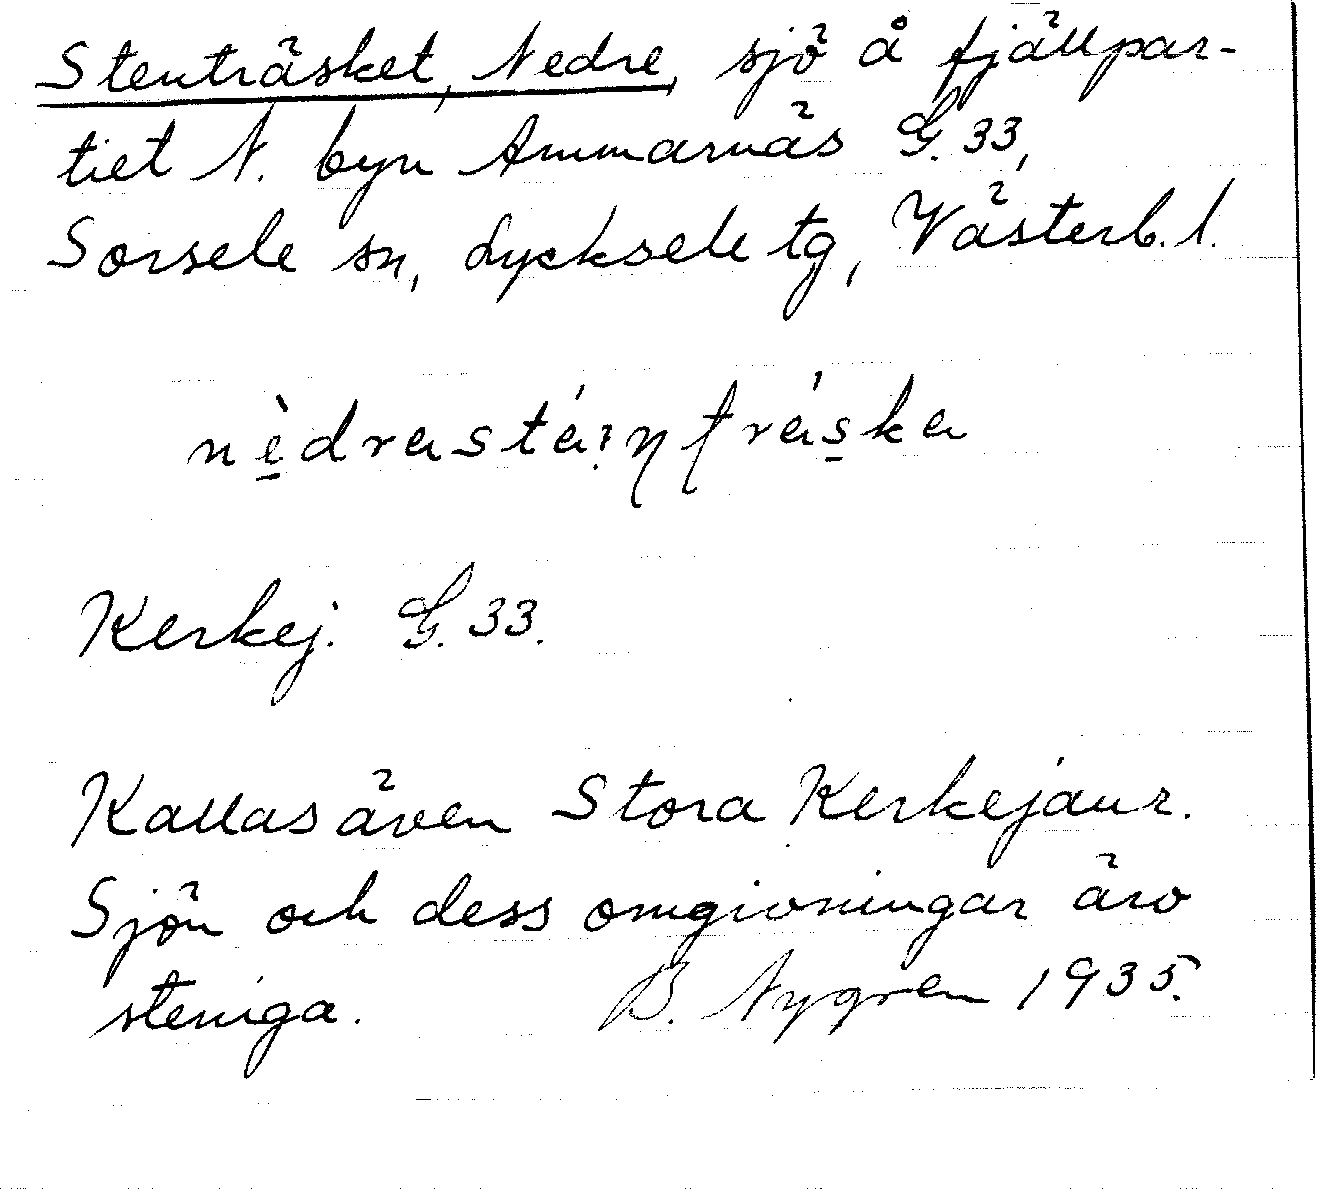 Stenträsket, Nedre, sjö å fjällpar-
tiet N. byn Ammarnäs G. 33,
Sorsele sn, Lycksele tg, Västerb. l.
Kerkej. G. 33.
Kallas även Stora Kerkejaur.
Sjön och dess omgivningar äro
steniga. B. Nygren 1935.